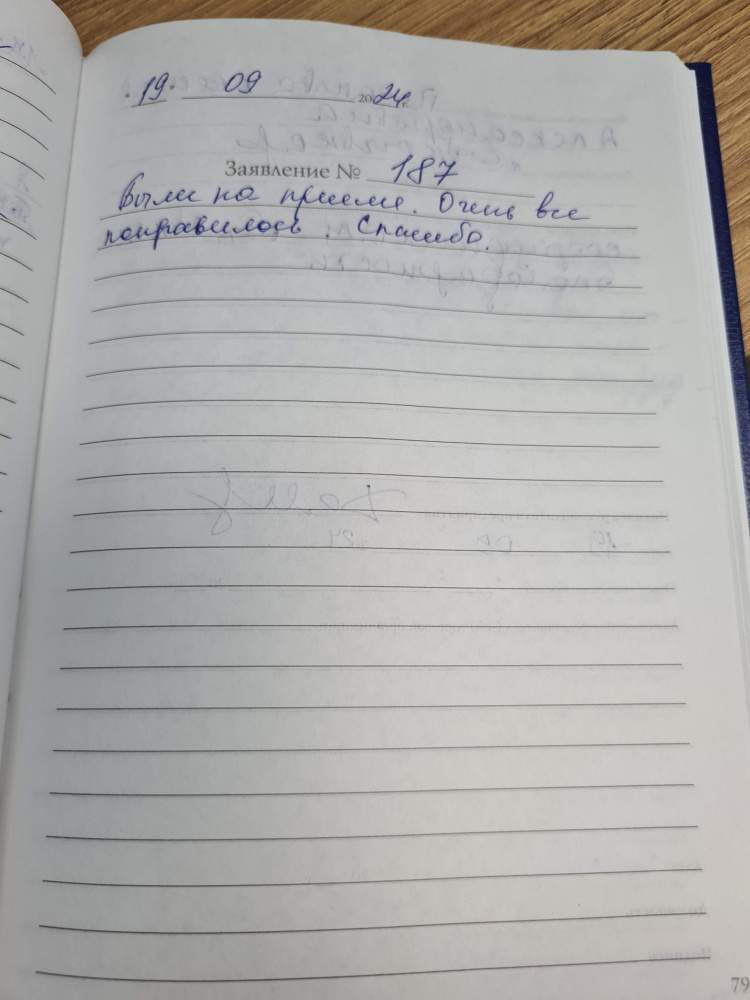 "19" 09 2024 г.
Заявление № 187
Были на приеме. Очень все
понравилось. Спасибо.
79